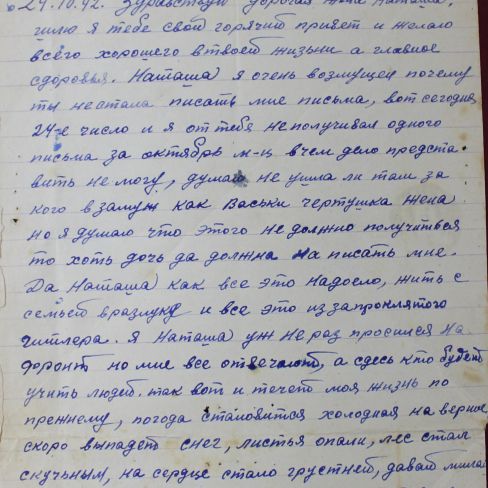 24.10.42. Здравствуй дорогая жена Наташа,
шлю я тебе свой горячий привет и желаю
всего хорошего в твоей жизьни а главное
сдоровья. Наташа я очень возмущен почему
ты нестала писать мне письма, вот сегодня
24-е число и я от тебя неполучивал одного
письма за октябрь м-ц в чем дело предста
вить не могу, думаю не ушла ли там за
кого взамуж как Васьки чертушка жена
но я думаю что этого не должно получиться
то хоть дочь да должна на писать мне.
Да Наташа как все это надоело, жить с
семьей вразлуку и все это из запроклятого
гитлера. я Наташа уж не раз просился на
фронт но мне все отвечают, а сдесь кто будет
учить людей. так вот и течет моя жизнь по
прежнему, погода становится холодная наверное
скоро выпадет снег, листья опали, лес стал
скучьным, на сердце стало грустней, давай милая